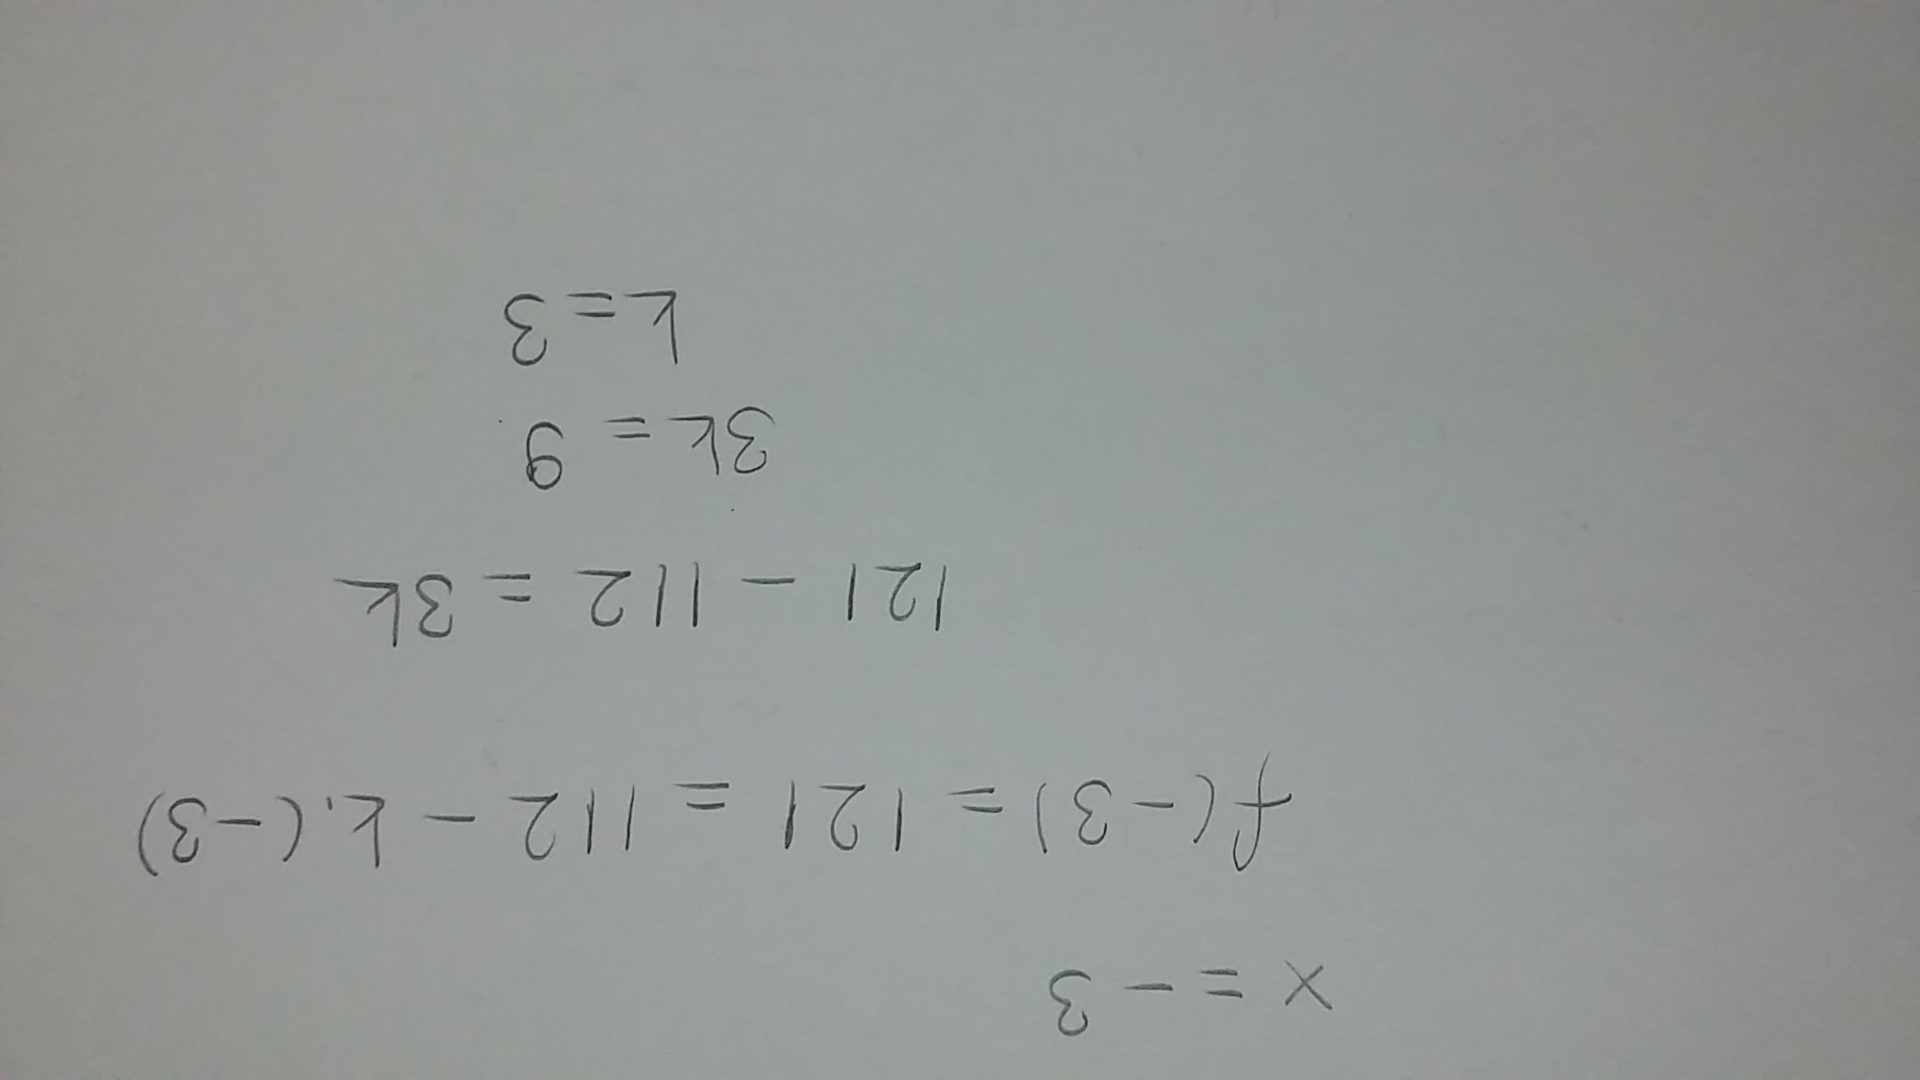 x = -3
f(-3) = 121 = 112 - k.(-3)
121 - 112 = 3k
3k = 9
k = 3